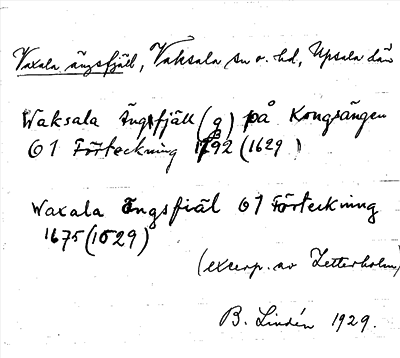 Vaxala ängsfjäll, Vaksala sn o. hd, Upsala län
Waksala Ängsfjäll (g) på Kongsängen
O1 Förteckning 1792 (1629)
Waxala Engsfiäl O1 Förteckning
1675 (1629)
(excerp. av Zetterholm)
B. Lindén 1929.